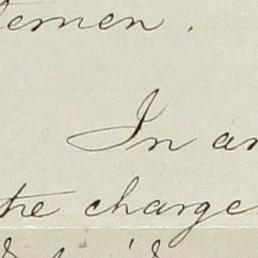 temen.
In an
the charge